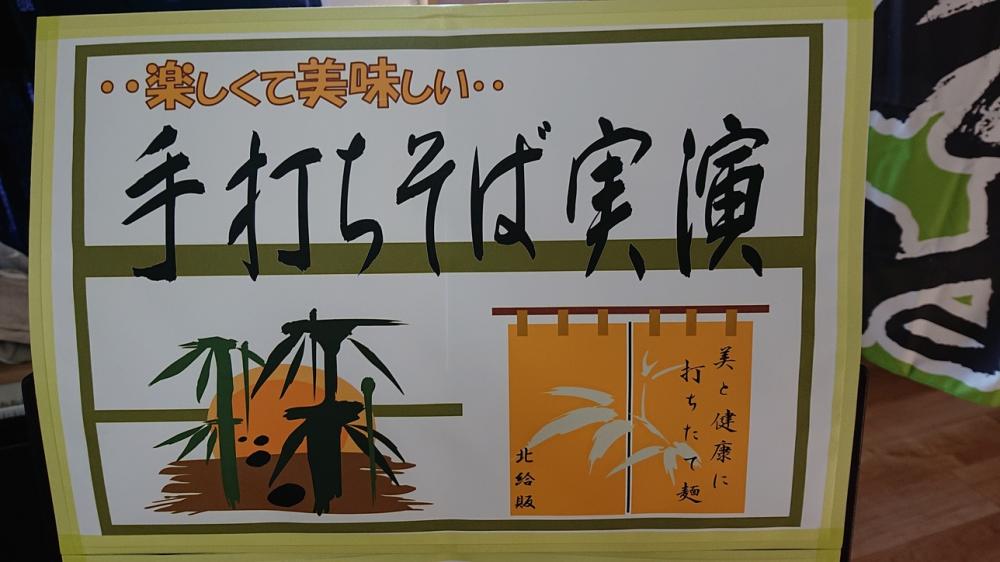 ・・楽しくて美味しい・・
手打ちそば実演
美と健康に
打ちたて麺
北給販